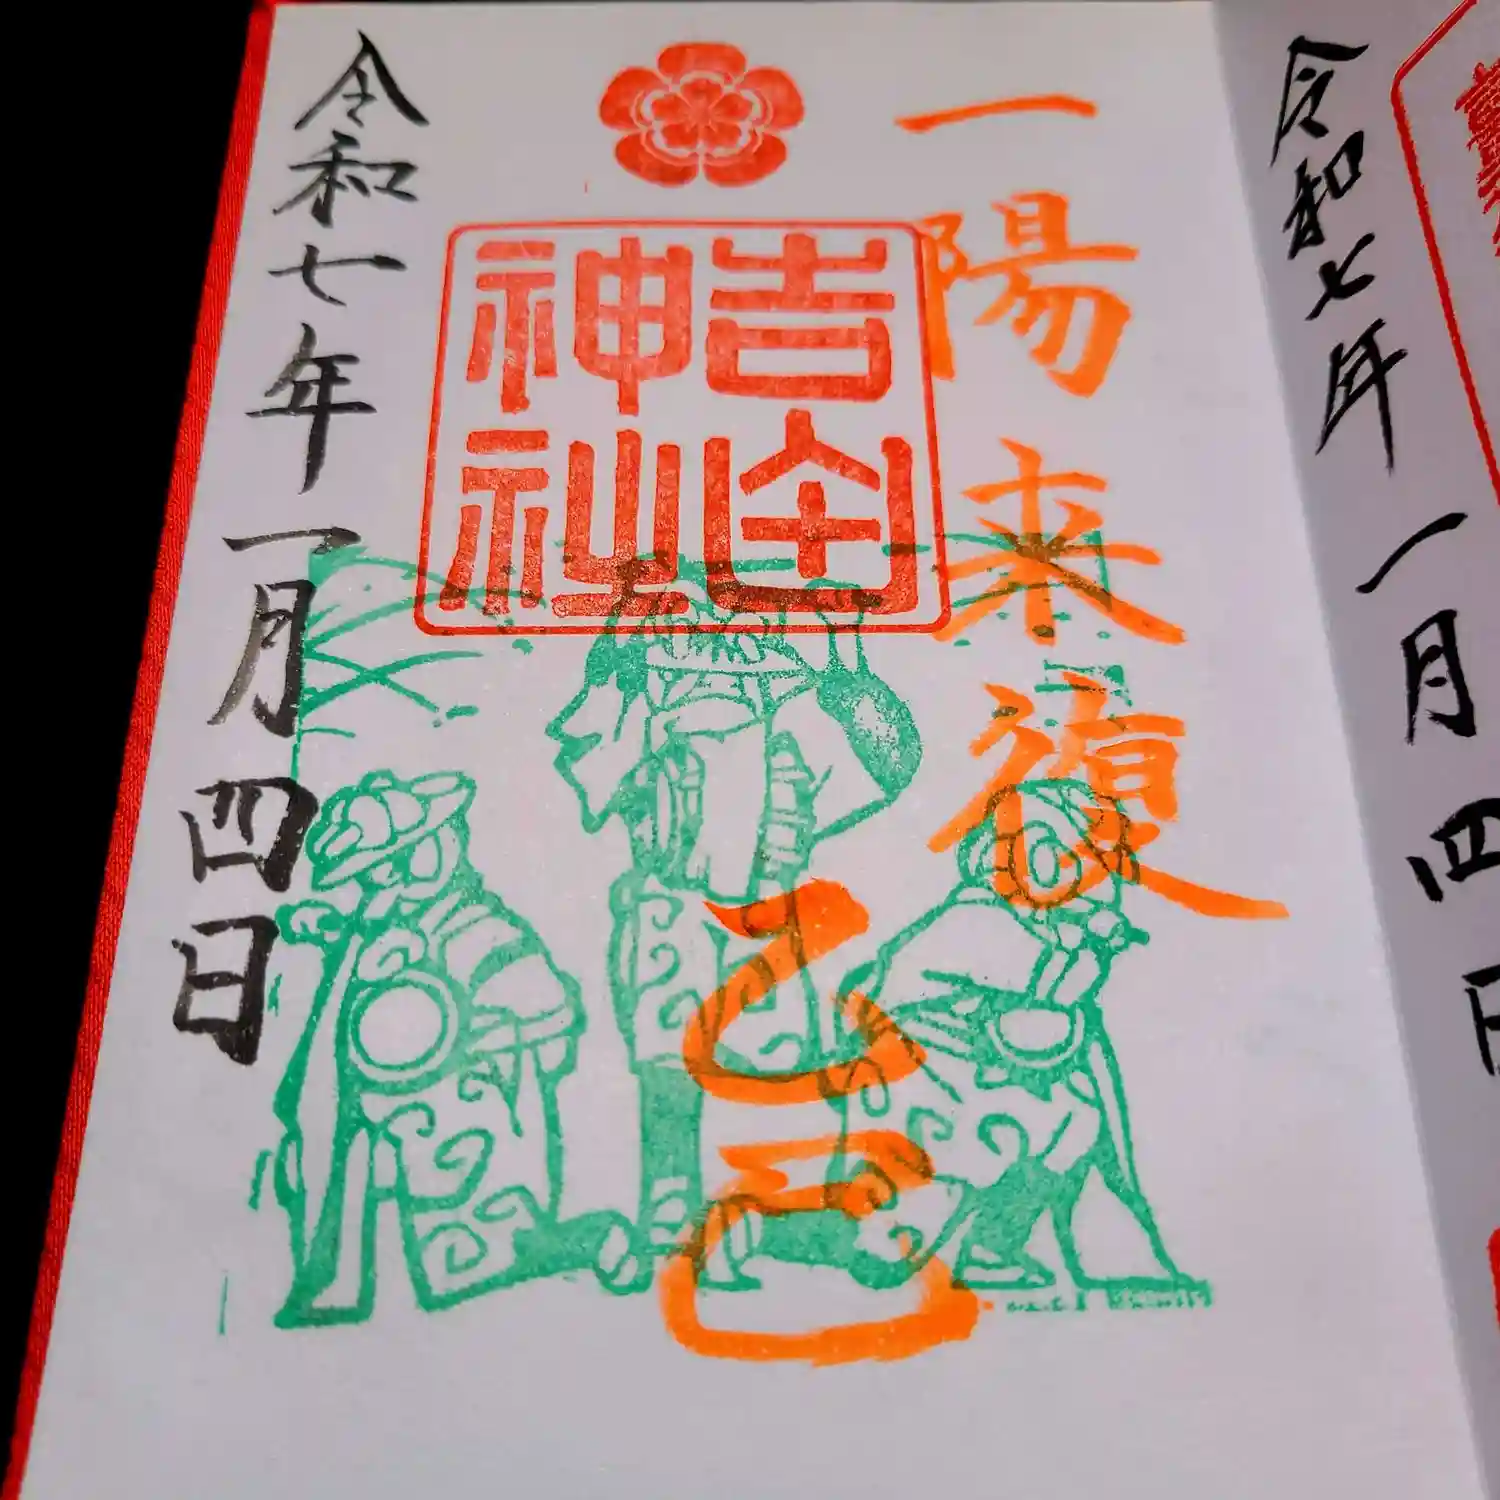 令和七年一月四日
一陽来復
乙巳
吉
神社
令和七年一月四日